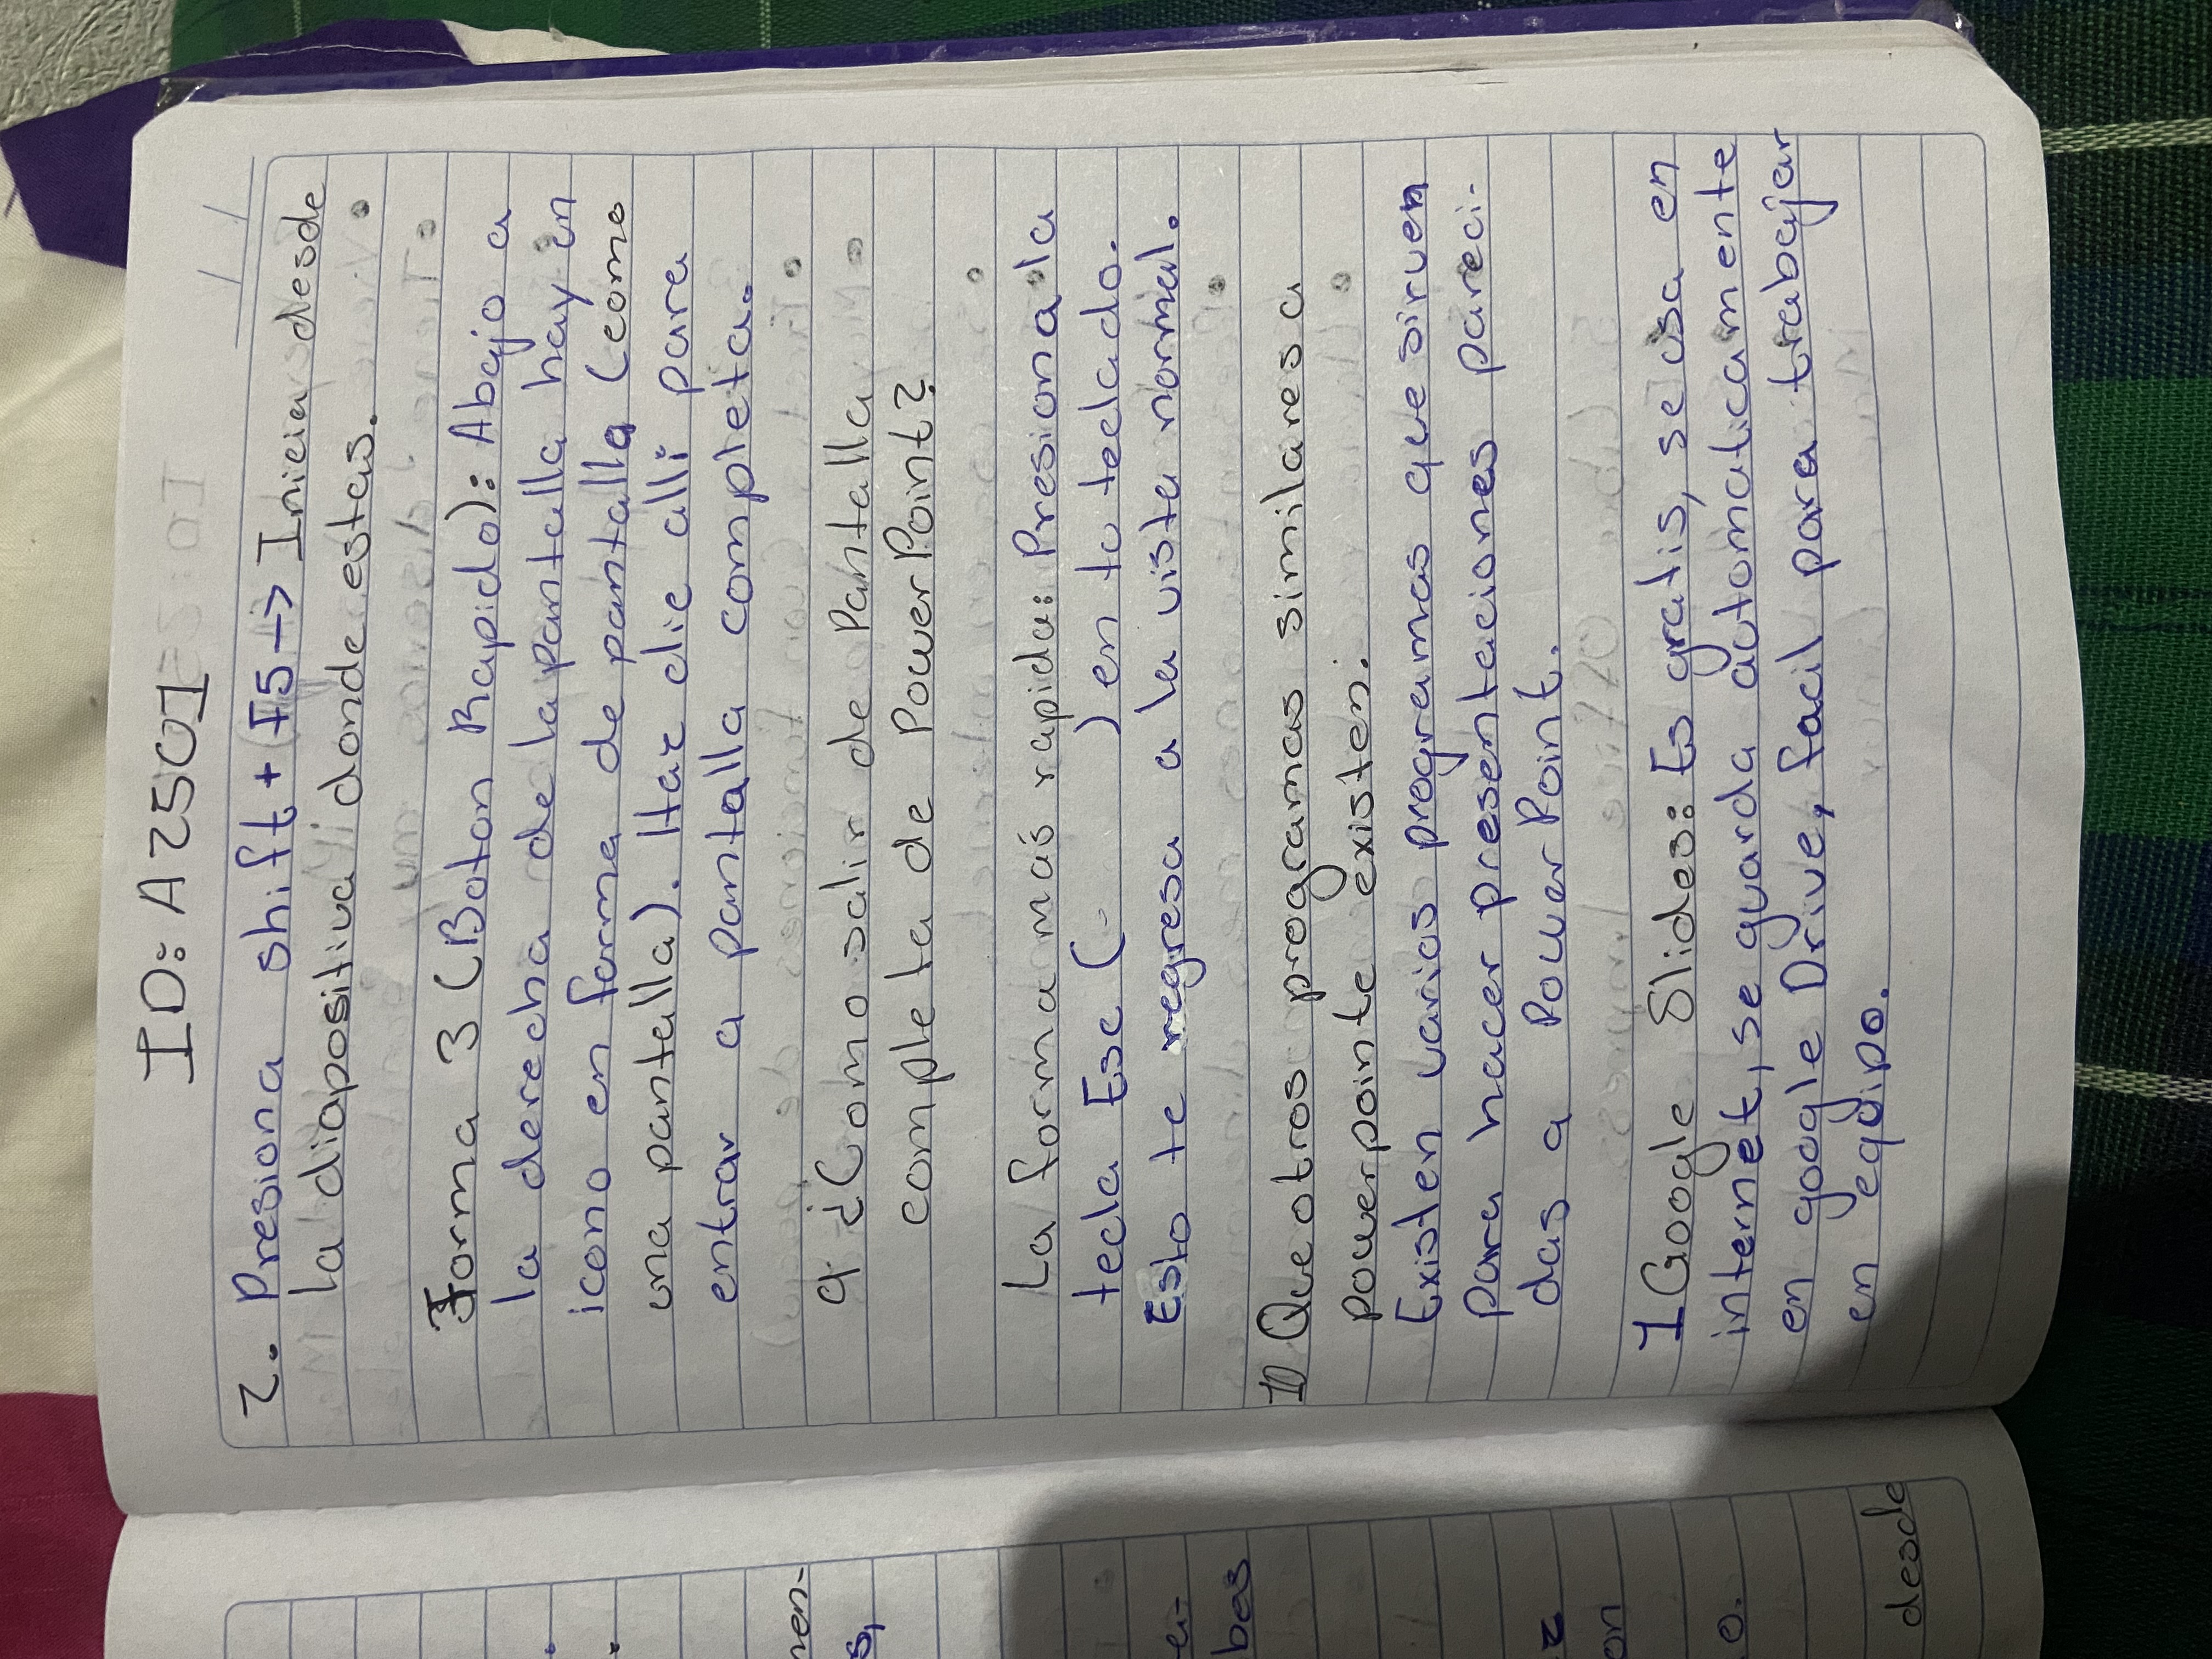 ID: A2501
2. Presiona shift + F5 → Inicia desde
la diapositiva donde estas.
Forma 3 (Boton Rapido): Abajo a
la derecha de la pantalla hay un
icono en forma de pantalla (como
una pantalla). Haz clic alli para
entrar a pantalla completa.
9 ¿Como salir de Pantalla
completa de PowerPoint?
La forma más rapida: Presiona la
tecla Esc ( ) en tu teclado.
Esto te regresa a la vista normal.
10 Que otros programas similares a
powerpointe existen:
Existen varios programas que sirven
para hacer presentaciones pareci-
das a PowerPoint.
1 Google Slides: Es gratis, se usa en
internet, se guarda automaticamente
en google Drive, facil para trabajar
en equipo.
men-
s,
bas
z
on
o.
desde